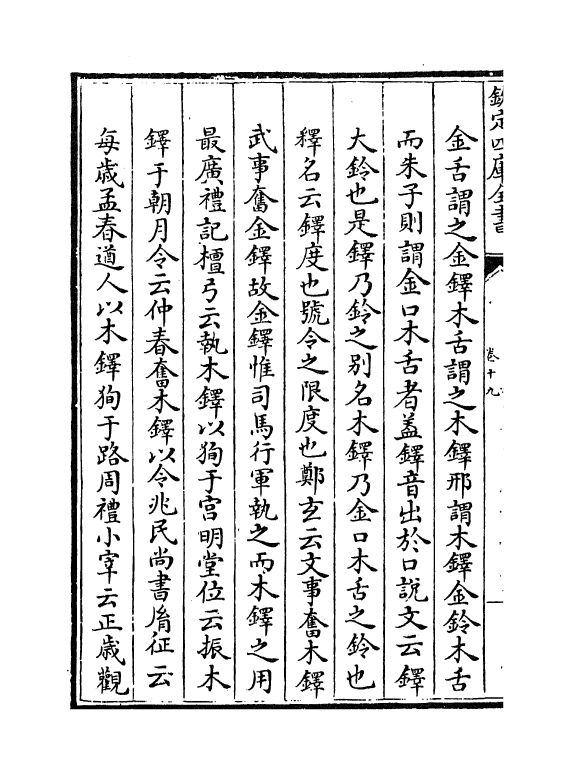 欽定四庫全書
卷十九
金舌謂之金鐸木舌謂之木鐸邢謂木鐸金鈴木舌
而朱子則謂金口木舌者葢鐸音出於口說文云鐸
大鈴也是鐸乃鈴之别名木鐸乃金口木舌之鈴也
釋名云鐸度也號令之限度也鄭玄云文事奮木鐸
武事奮金鐸故金鐸惟司馬行軍執之而木鐸之用
最廣禮記檀弓云執木鐸以狥于宫明堂位云振木
鐸于朝月令云仲春奮木鐸以令兆民尚書胤征云
每歳孟春遒人以木鐸狥于路周禮小宰云正歳觀